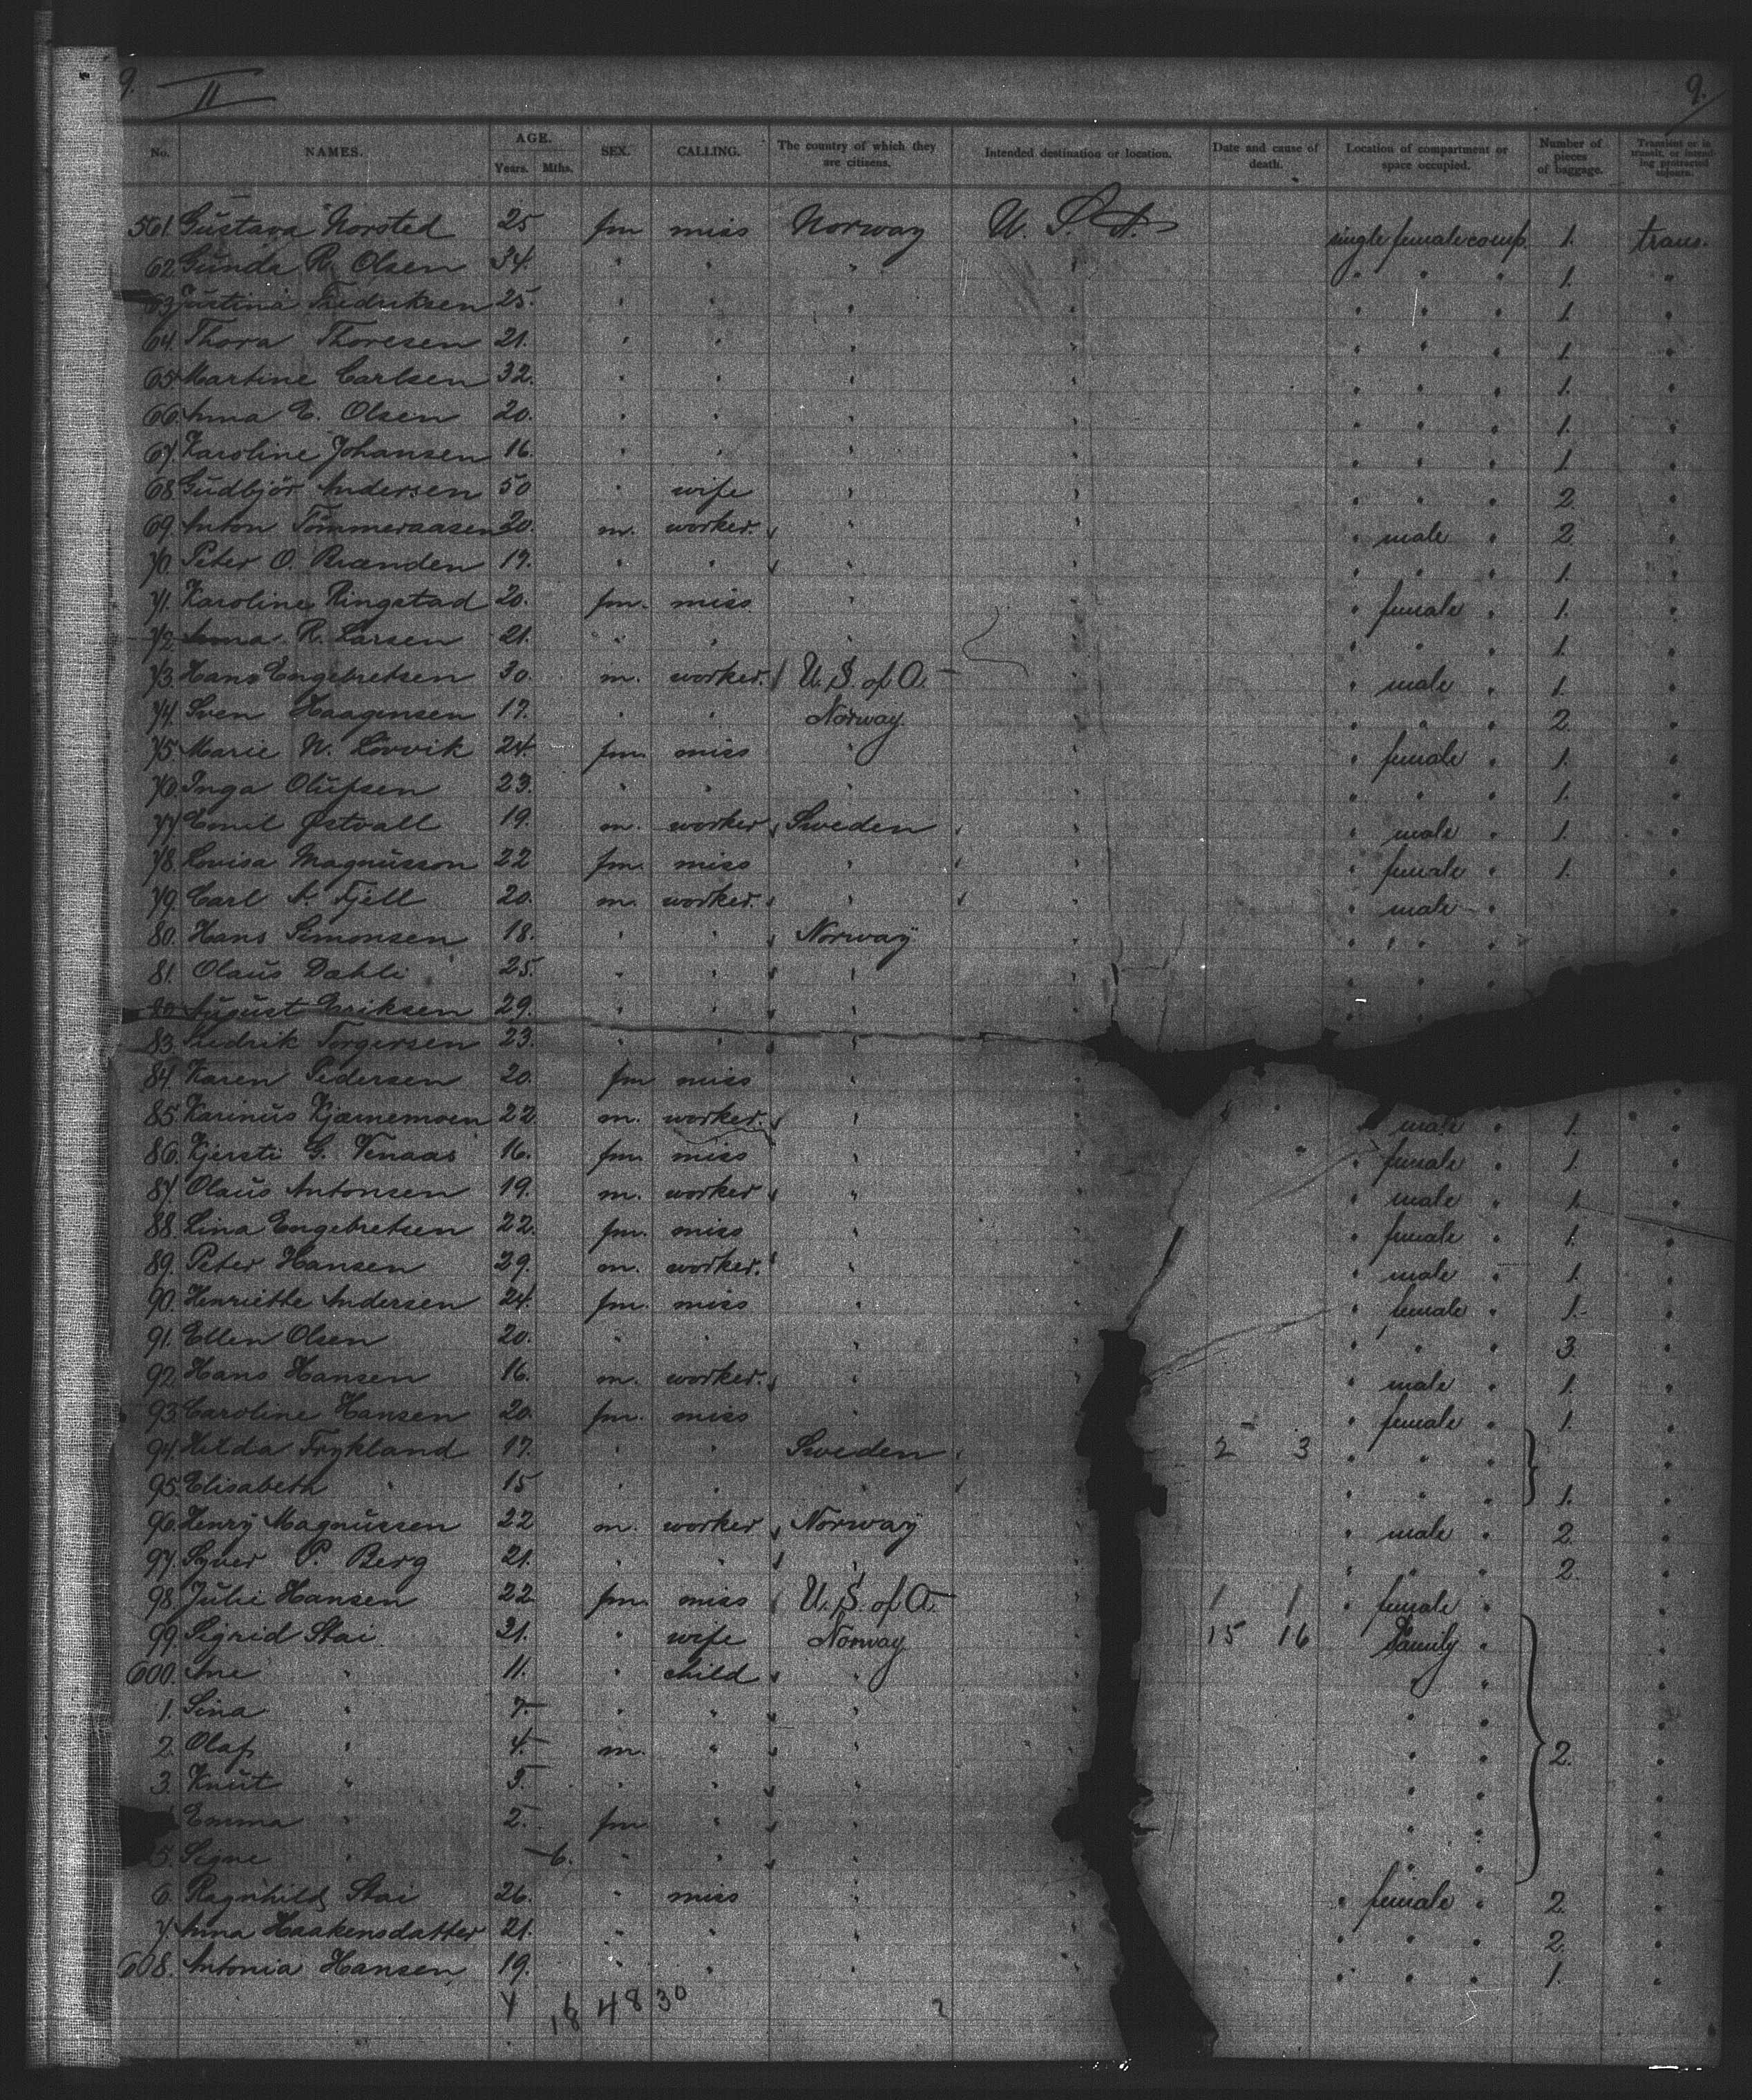 9. II 9.
No. NAMES. AGE. Years. Mths. SEX. CALLING. The country of which they are citizens. Intended destination or location. Date and cause of death. Location of compartment or space occupied. Number of pieces of baggage. Transient or in transit, or intending protracted sojourn.
561. Gustava Norsted 25 fm miss Norway U. S. A. single female comp. 1. trans.
62. Gunda R. Olsen 34. " " " " " " " 1. "
63. Justina Fredriksen 25. " " " " " 1. "
64. Thora Thoresen 21. " " " " " " " 1. "
65. Martine Carlsen 32. " " " " " " " 1. "
66. Anna E. Olsen 20. " " " " " " " 1. "
67. Karoline Johansen 16. " " " " " " " 1. "
68. Gudbjör Andersen 50 " wife " " " " " 2. "
69. Anton Tömmeraasen 20. m. worker. " " " male " 2. "
70. Peter O. Brænden 19. " " " " " " " 1. "
71. Karoline Ringstad 20. fm. miss " " " female " 1. "
72. Anna R. Larsen 21. " " " " " " " 1. "
73. Hans Engebretsen 30. m. worker. U. S. of A. " " male " 1. "
74. Sven Haagensen 17. " " Norway. " " " " 2. "
75. Marie N. Lövvik 24. fm. miss " " " female " 1. "
76. Inga Olufsen 23. " " " " " " " 1. "
77. Emil Østvall 19. m. worker Sweden " " male " 1. "
78. Lovisa Magnusson 22 fm. miss " " " female " 1. "
79. Carl A. Fjell 20. m. worker. " " " male "
80. Hans Simonsen 18. " " Norway " " " "
81. Olaus Dahli 25. " " " " " " "
82. August Eriksen 29. " " " " " "
83. Fredrik Torgersen 23. " " " "
84. Karen Pedersen 20. fm miss " " "
85. Karinus Kjærnemoen 22 m. worker. " " male " 1. "
86. Kjersti G. Venaas 16. fm. miss " " " female " 1. "
87. Olaus Antonsen 19. m. worker " " " male " 1. "
88. Lina Engebretsen 22. fm. miss " " " female " 1. "
89. Peter Hansen 29. m. worker. " " " male " 1. "
90. Henriette Andersen 24. fm. miss " " " female " 1. "
91. Ellen Olsen 20. " " " " " " " 3. "
92. Hans Hansen 16. m. worker. " " " male " 1. "
93. Caroline Hansen 20. fm. miss " " " female " 1. "
94. Hilda Frykland 17. " " Sweden 2 3 " " " "
95. Elisabeth " 15 " " " " " " " 1. "
96. Henry Magnussen 22 m. worker Norway " " male " 2. "
97. Syver P. Berg 21. " " " " " " " 2. "
98. Julie Hansen 22. fm. miss U. S. of A. 1 1 " female " "
99. Sigrid Stai 31. " wife Norway " 15 16 Family " "
600. Ane " 11. " child " " " " "
1. Sina " 7. " " " " " " "
2. Olaf " 4. m. " " " " " 2. "
3. Knut " 5. " " " " " " "
Emma " 2. fm. " " " " " "
5. Signe " 6. " " " " " " "
6. Ragnhild Stai 26. " miss " " " female " 2. "
7. Anna Haakensdatter 21. " " " " " " " 2. "
608. Antonia Hansen 19. " " " " " " " 1. "